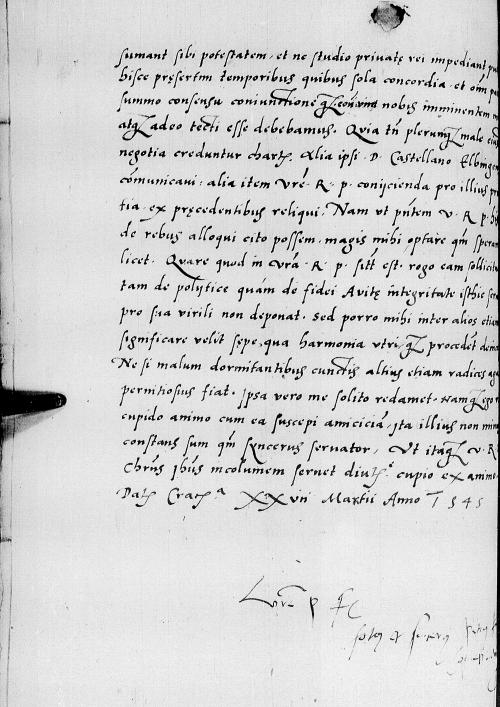 sumant sibi potestatem, et ne studio privatę rei impediant
hisce pręsertim temporibus quibus sola concordia et oīm
summo consensu coniunctione nobis imminentem
atqʒ adeo tecti esse debebamus. Quia tñ plerumqʒ male
negotia creduntur chartę. Alia ipsi D. Castellano Elbingen
cōmunicavi. alia item Vrę R. p. conijcienda pro illius
tia ex pręcedentibus reliqui. Nam ut pñtem V. R. p.
de rebus alloqui cito possem, magis mihi optare qm̄ sperar
licet. Quare quod in vrā R. p. sitū est, rogo eam sollicitu
tam de polytice quam de fidei Avitę integritate isthic
pro sua virili non deponat. Sed porro mihi inter alios etiam
significare velit sępe, qua harmonia utriqʒ procedēt
Ne si malum dormitantibus cunctis altius etiam radices
pernitiosius fiat. Ipsa vero me solito redamet. Namqʒ ego
cupido animo cum ea suscepi amicicia, ita illius non min
constans sum qm̄ syncerus servator. Ut itaqʒ V. R.
Chrūs Ihūs incolumem servet diut. cupio ex animo
Datę Crac XXVII Martii Anno 1545